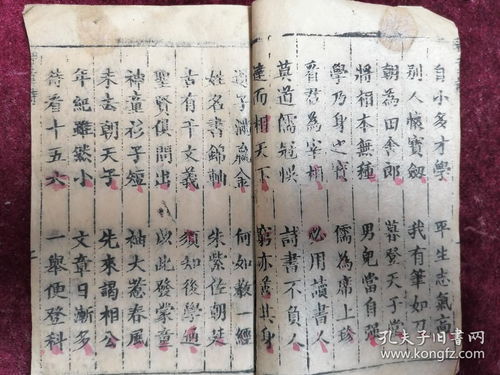 自小多才學　平生志氣高
別人懷寶劍　我有筆如刀
朝為田舍郎　暮登天子堂
將相本無種　男兒當自強
學乃身之寶　儒為席上珍
看君為宰相　必用讀書人
莫道儒冠悞　詩書不負人
達而相天下　窮亦善其身
遺子滿籯金　何如教一經
姓名書錦軸　朱紫佐朝廷
古有千文義　須知後學通
聖賢俱間出　以此發蒙童
神童衫子短　袖大惹春風
未去朝天子　先來謁相公
年紀雖然小　文章日漸多
待看十五六　一舉便登科
孔夫子旧书网
www.kongfz.com